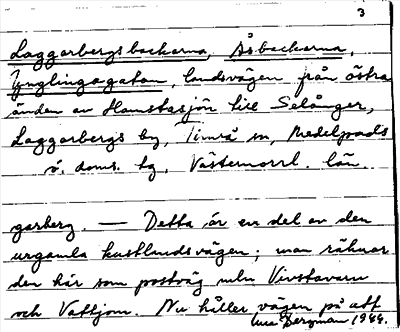 3
Laggarbergsbackarna, Åsbackarna,
Ynglingagatan, landsvägen från östra
änden av Hamstasjön till Selånger,
Laggarbergs by, Timrå sn, Medelpads
ö. doms. tg, Västernorrl. län
garberg. — Detta är en del av den
urgamla kustlandsvägen; man räknar
den här som postväg mln Vivstavarv
och Vattjom. Nu håller vägen på att
Bergman 1944.